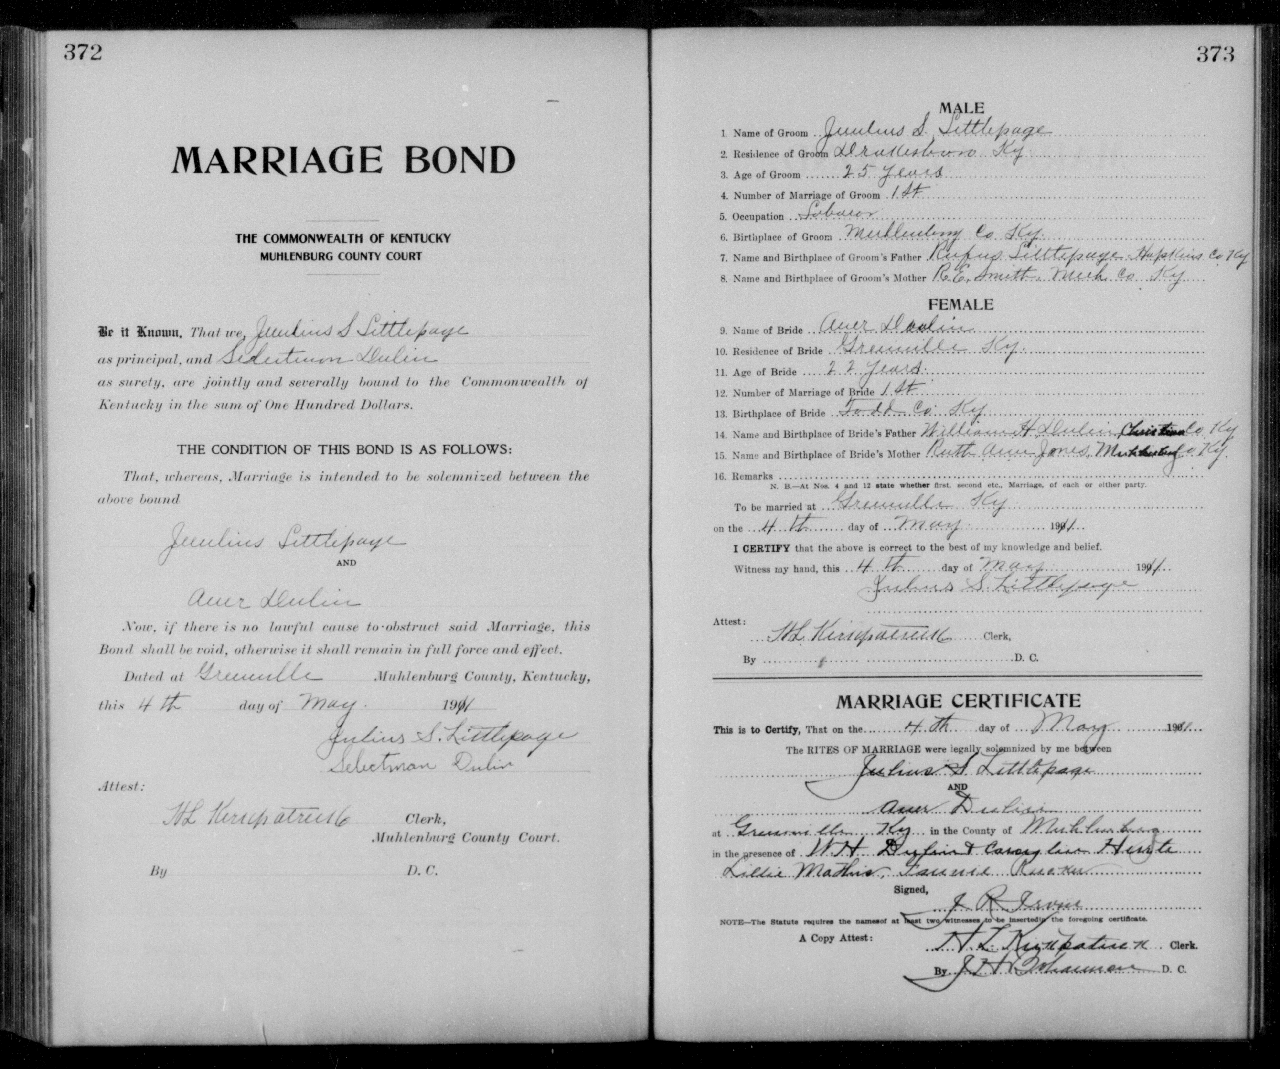 372
MARRIAGE BOND
THE COMMONWEALTH OF KENTUCKY
MUHLENBURG COUNTY COURT
Be it Known, That we, Juulius S Littlepage
as principal, and Selectmon Dulin
as surety, are jointly and severally bound to the Commonwealth of
Kentucky in the sum of One Hundred Dollars.
THE CONDITION OF THIS BOND IS AS FOLLOWS:
That, whereas, Marriage is intended to be solemnized between the
above bound
Juulius Littlepage
AND
Auer Dulin
Now, if there is no lawful cause to obstruct said Marriage, this
Bond shall be void, otherwise it shall remain in full force and effect.
Dated at Greenville Muhlenburg County, Kentucky,
this 4 th day of May. 1911
Julius S. Littlepage
Selectman Dulin
Attest:
HL Kirkpatrick Clerk,
Muhlenburg County Court.
By D. C.
373
MALE
1. Name of Groom Juulius S. Littlepage
2. Residence of Groom Drakesboro Ky
3. Age of Groom 25 years
4. Number of Marriage of Groom 1 St
5. Occupation
6. Birthplace of Groom Muhlenburg Co Ky
7. Name and Birthplace of Groom's Father Rufus Littlepage Hopkins Co Ky
8. Name and Birthplace of Groom's Mother R.E. Smith, Muh Co Ky
FEMALE
9. Name of Bride Auer Dulin
10. Residence of Bride Greenville Ky.
11. Age of Bride 22 years.
12. Number of Marriage of Bride 1 St
13. Birthplace of Bride Todd Co Ky
14. Name and Birthplace of Bride's Father William H Dulin, Christian Co Ky
15. Name and Birthplace of Bride's Mother Ruth Ann Jones, Muhlenburg Co Ky.
16. Remarks
N. B.—At Nos. 4 and 12 state whether first, second etc., Marriage, of each or either party.
To be married at Greenville Ky
on the 4 th day of May 1911
I CERTIFY that the above is correct to the best of my knowledge and belief.
Witness my hand, this 4 th day of May 1911
Julius S. Littlepage
Attest:
HL Kirkpatrick Clerk,
By D. C.
MARRIAGE CERTIFICATE
This is to Certify, That on the 4 th day of May 1911
The RITES OF MARRIAGE were legally solemnized by me between
Julius S Littlepage
AND
Auer Dulin
at Greenville Ky in the County of Muhlenburg
in the presence of W H Dulin &
Lillie Mathis, Fannie Rucker
Signed,
J R Irvin
NOTE—The Statute requires the names of at least two witnesses to be inserted in the foregoing certificate.
A Copy Attest: H L Kirkpatrick Clerk.
By D. C.